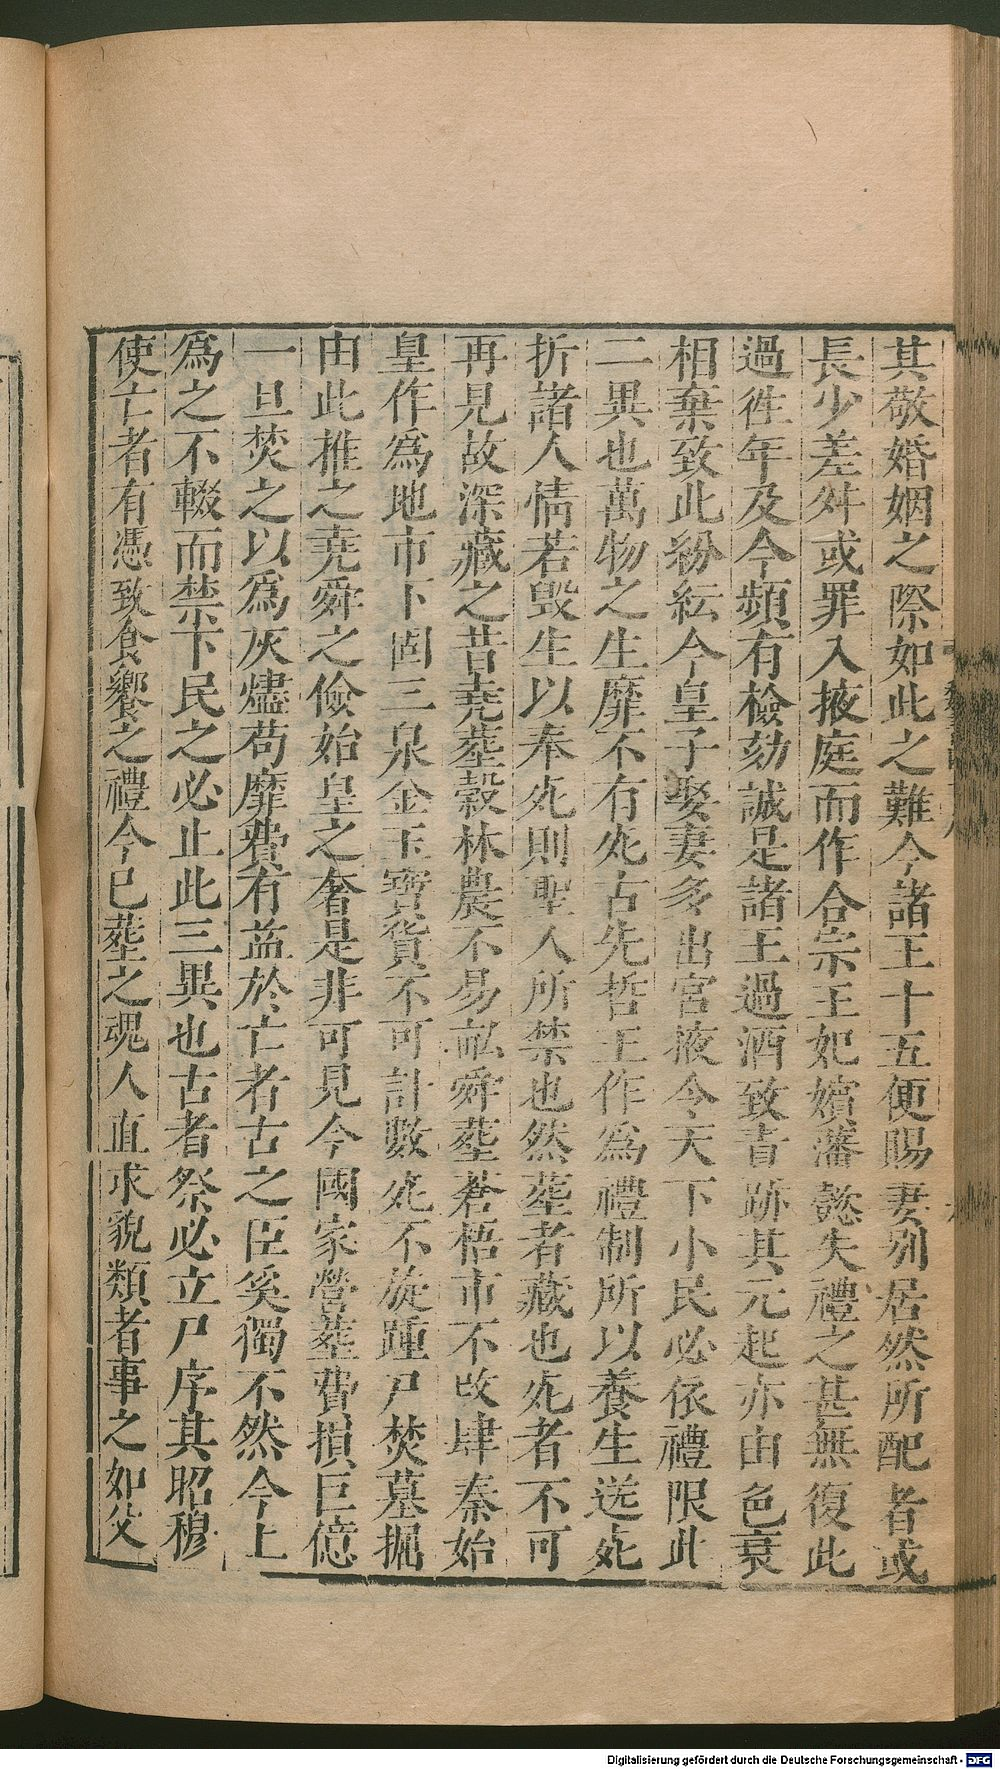 其敬婚姻之際如此之難今諸王十五便賜妻别居然所配者或
長少差舛或罪入掖庭而作合宗王妃嬪藩懿失禮之甚無復此
過徃年及今頻有檢劾誠是諸王過酒致責跡其元起亦由色衰
相棄致此紛紜今皇子娶妻多出宫掖令天下小民必依禮限此
二異也萬物之生靡不有死古先哲王作為禮制所以養生送死
折諸人情若毁生以奉死則聖人所禁也然葬者藏也死者不可
再見故深藏之昔堯葬穀林農不易畝舜葬蒼梧市不改肆秦始
皇作為地市下固三泉金玉寶貨不可計數死不旋踵尸焚墓掘
由此推之堯舜之儉始皇之奢是非可見今國家營葬費損巨億
一旦焚之以為灰燼苟靡費有益於亡者古之臣奚獨不然今上
為之不輟而禁下民之必止此三異也古者祭必立尸序其昭穆
使亡者有憑致食饗之禮今已葬之魂人直求貌類者事之如父
Digitalisierung gefördert durch die Deutsche Forschungsgemeinschaft - DFG